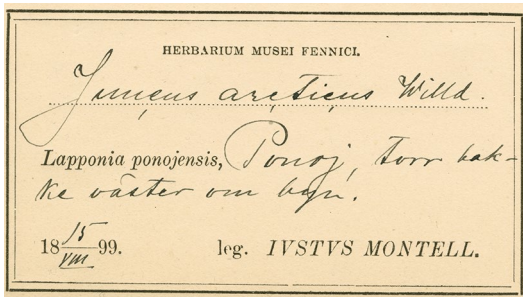 HERBARIUM MUSEI FENNICI.
Juncus arcticus Willd.
Lapponia ponojensis, Ponoj, torr bak-
ke väster om byn.
18 15/VIII 99. leg. IVSTVS MONTELL.